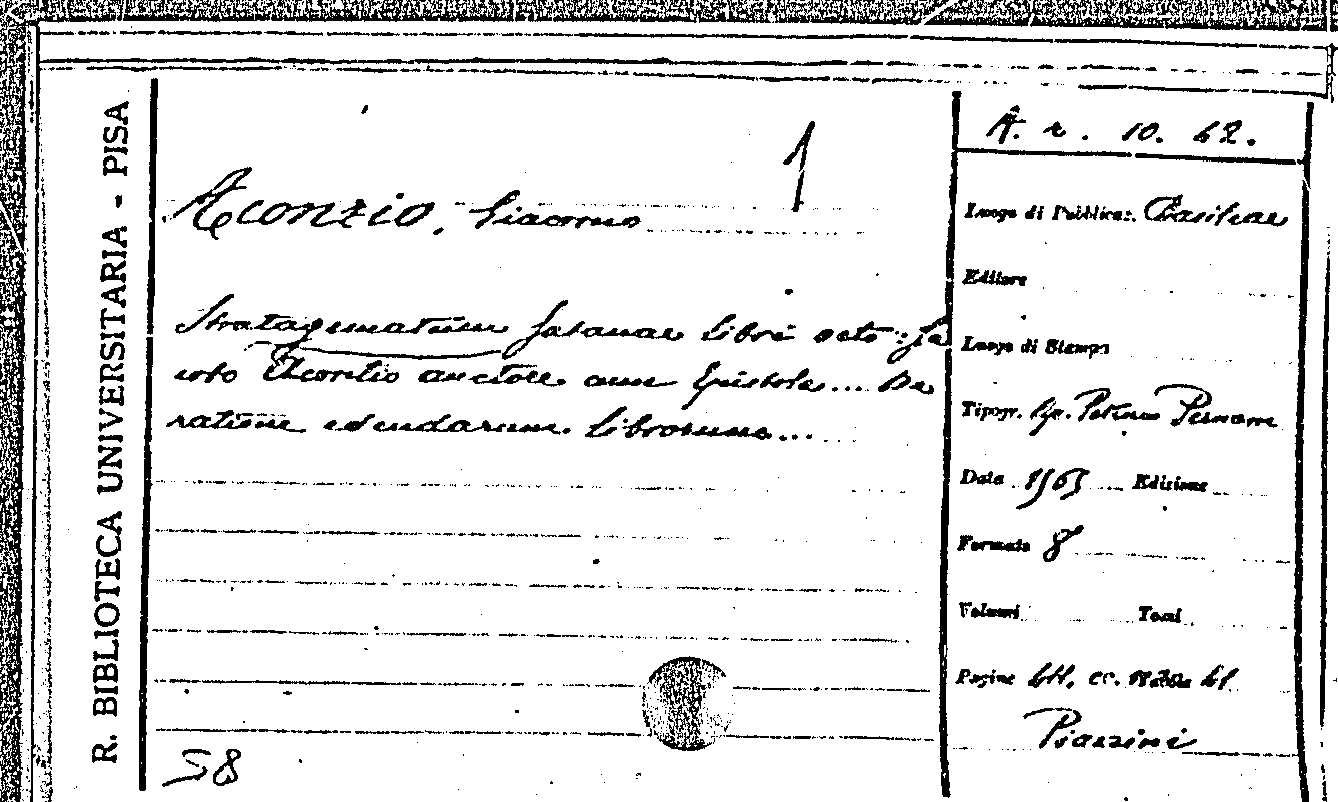 R. BIBLIOTECA UNIVERSITARIA - PISA
1
Aconzio, Giacomo
Stratagematum Satanae libri octo: Ja
cobo Acontio auctore cum Epistola... De
ratione edendarum librorum...
58
A. r. 10. 62.
Luogo di Pubblicaz. Basileae
Editore
Luogo di Stampa
Tipogr. Petrum Pernam
Data 1565 Edizione
Formato 8°
Volumi Tomi
Pagine cc.
Piazzini